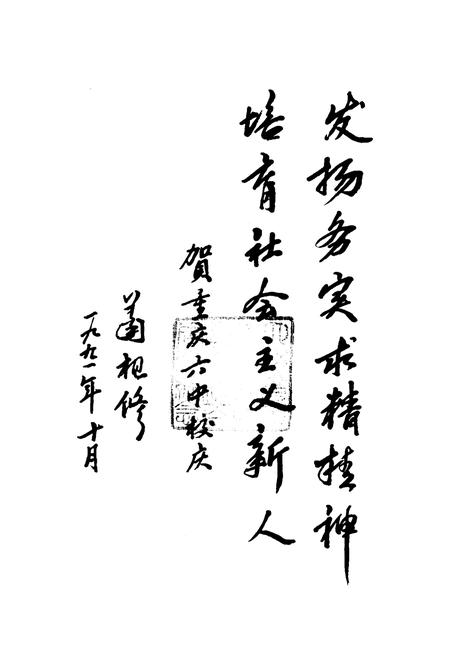 发扬务实求精精神
培育社会主义新人
賀重庆六中校庆
蕭祖修
一九九一年十月